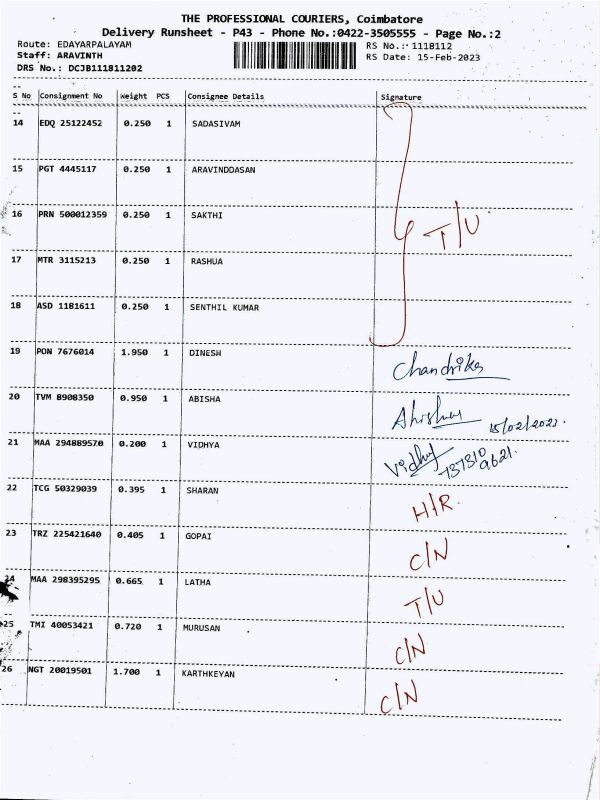 THE PROFESSIONAL COURIERS, Coimbatore
Delivery Runsheet - P43 - Phone No.:0422-3505555 - Page No.:2
Route: EDAYARPALAYAM RS No.: 1118112
Staff: ARAVINTH RS Date: 15-Feb-2023
DRS No.: DCJB111811202
S No Consignment No Weight PCS Consignee Details Signature
14 EDQ 25122452 0.250 1 SADASIVAM
15 PGT 4445117 0.250 1 ARAVINDDASAN
16 PRN 500012359 0.250 1 SAKTHI T/U
17 MTR 3115213 0.250 1 RASHUA
18 ASD 1181611 0.250 1 SENTHIL KUMAR
19 PON 7676014 1.950 1 DINESH Chandrika
20 TVM 8908350 0.950 1 ABISHA 15/02/2023.
21 MAA 294889570 0.200 1 VIDHYA Vidhya
22 TCG 50329039 0.395 1 SHARAN H/R.
23 TRZ 225421640 0.405 1 GOPAI C/N
24 MAA 298395295 0.665 1 LATHA T/U
25 TMI 40053421 0.720 1 MURUSAN C/N
26 NGT 20019501 1.700 1 KARTHKEYAN C/N